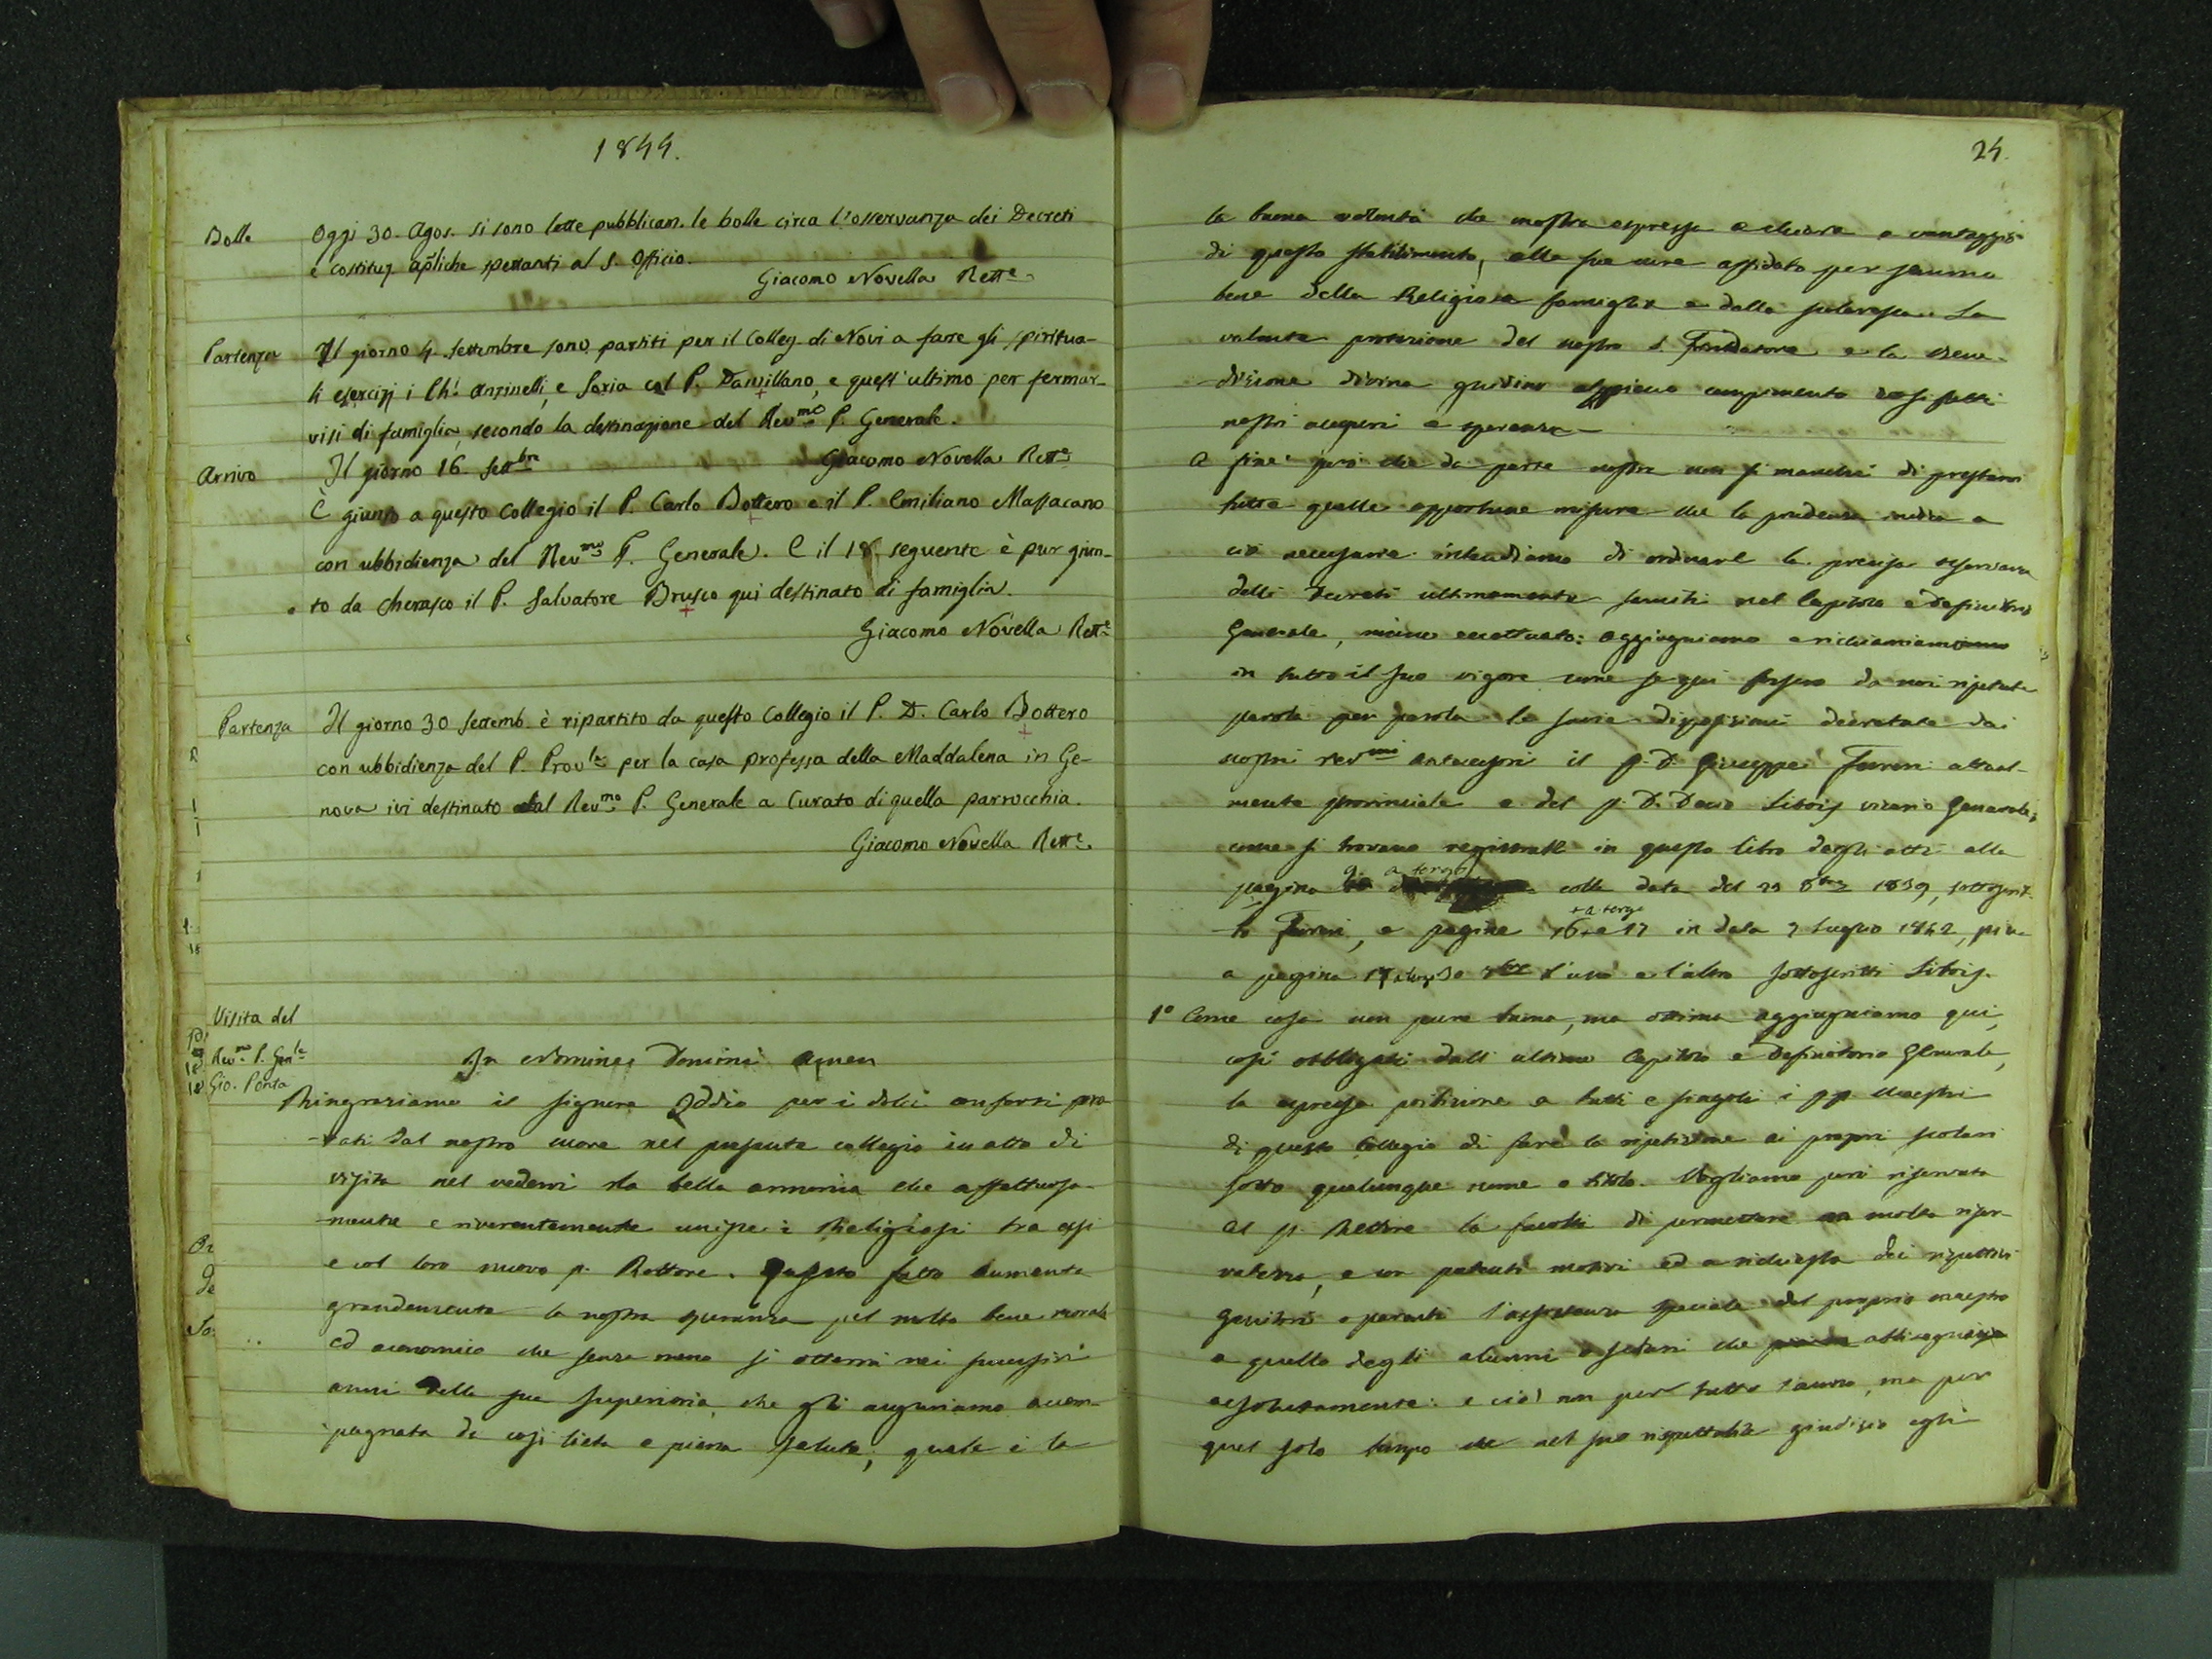 1844.
Bolle
Oggi 30. Agos. si sono lette pubblicam. le bolle circa l'osservanza dei Decreti
e costituz. apliche spettanti al S. Officio.
Giacomo Novella Rett.e
Partenza
Il giorno 4. settembre sono partiti per il Colleg. di Novi a fare gli spiritua-
li esercizj i Ch.i Anfinelli, e Soria col P. Danvillano, e quest'ultimo per fermar-
visi di famiglia, secondo la destinazione del Rev.mo P. Generale.
Giacomo Novella Rett.e
Arrivo
Il giorno 16. Settbre
È giunto a questo Collegio il P. Carlo Bottero e il P. Emiliano Massacano
con ubbidienza del Rev.mo P. Generale. E il 18 seguente è pur giun-
to da Cherasco il P. Salvatore Brusco qui destinato di famiglia.
Giacomo Novella Rett.e
Partenza
Il giorno 30 Settemb. è ripartito da questo Collegio il P. D. Carlo Bottero
con ubbidienza del P. Prov.le per la casa professa della Maddalena in Ge-
nova ivi destinato dal Rev.mo P. Generale a Curato di quella parrocchia.
Giacomo Novella Rett.e
Visita del
Rev.mo P. Gen.le
Gio. Ponta
In Nomine Domini Amen
Ringraziamo il Signore Iddio per i dolci conforti pro-
vati dal nostro cuore nel presente collegio in atto di
visita nel vedervi la bella armonia che affettuosa-
mente e riverentemente unisce i Religiosi tra essi
e col loro nuovo p. Rettore. Questo fatto aumenta
grandemente la nostra speranza pel molto bene morale
ed economico che senza meno si otterrà nei successivi
anni della sua superiorìa, che gli auguriamo accom-
pagnata da così lieta e piena salute, quale è la
24.
la buona volontà che mostra espressa e chiara a vantaggio
di questo stabilimento, alle sue cure affidato per sommo
bene della Religiosa famiglia e della scolaresca. La
valente protezione del nostro S. Fondatore e la bene-
dizione divina guidino appieno compimento sì fatti
nostri augurj e speranze.
A fine però che da parte nostra non si manchi di prestarvi
tutte quelle opportune misure che la prudenza indica a
ciò necessarie intendiamo di ordinare la precisa osservanza
delli Decreti ultimamente sanciti nel Capitolo e Definitorio
Generale, niuno eccettuato: aggiugniamo e richiamiamo
in tutto il suo vigore come se qui fossero da noi ripetute
parola per parola le savie disposizioni decretate dai
nostri rev.mi antecessori il p. D. Giuseppe Ferreri attual-
mente provinciale e del p. D. Decio Libois vicario Generale,
come si trovano registrate in questo libro degli atti alla
pagina 9. a tergo colla data del 29 8bre 1839, sottoscrit-
to Ferreri, e pagine 16. a tergo e 17 in data 7 luglio 1842, più
a pagina 17 a tergo l'uno e l'altro sottoscritti Libois.
1° Come cosa non pure buona, ma ottima aggiugniamo qui,
così obbligati dall'ultimo Capitolo e Definitorio Generale,
la espressa proibizione a tutti e singoli i pp. Maestri
di questo Collegio di fare la ripetizione ai proprj scolari
sotto qualunque nome o titolo. Vogliamo però riservata
al p. Rettore la facoltà di permettere con molta riser-
vatezza, e con potenti motivi ed a richiesta dei rispettivi
genitori o parenti l'assistenza speciale del proprio maestro
a quello degli alunni o scolari che abbisognasse
assolutamente: e ciò non per tutto l'anno, ma per
quel solo tempo che nel suo rispettabile giudizio egli